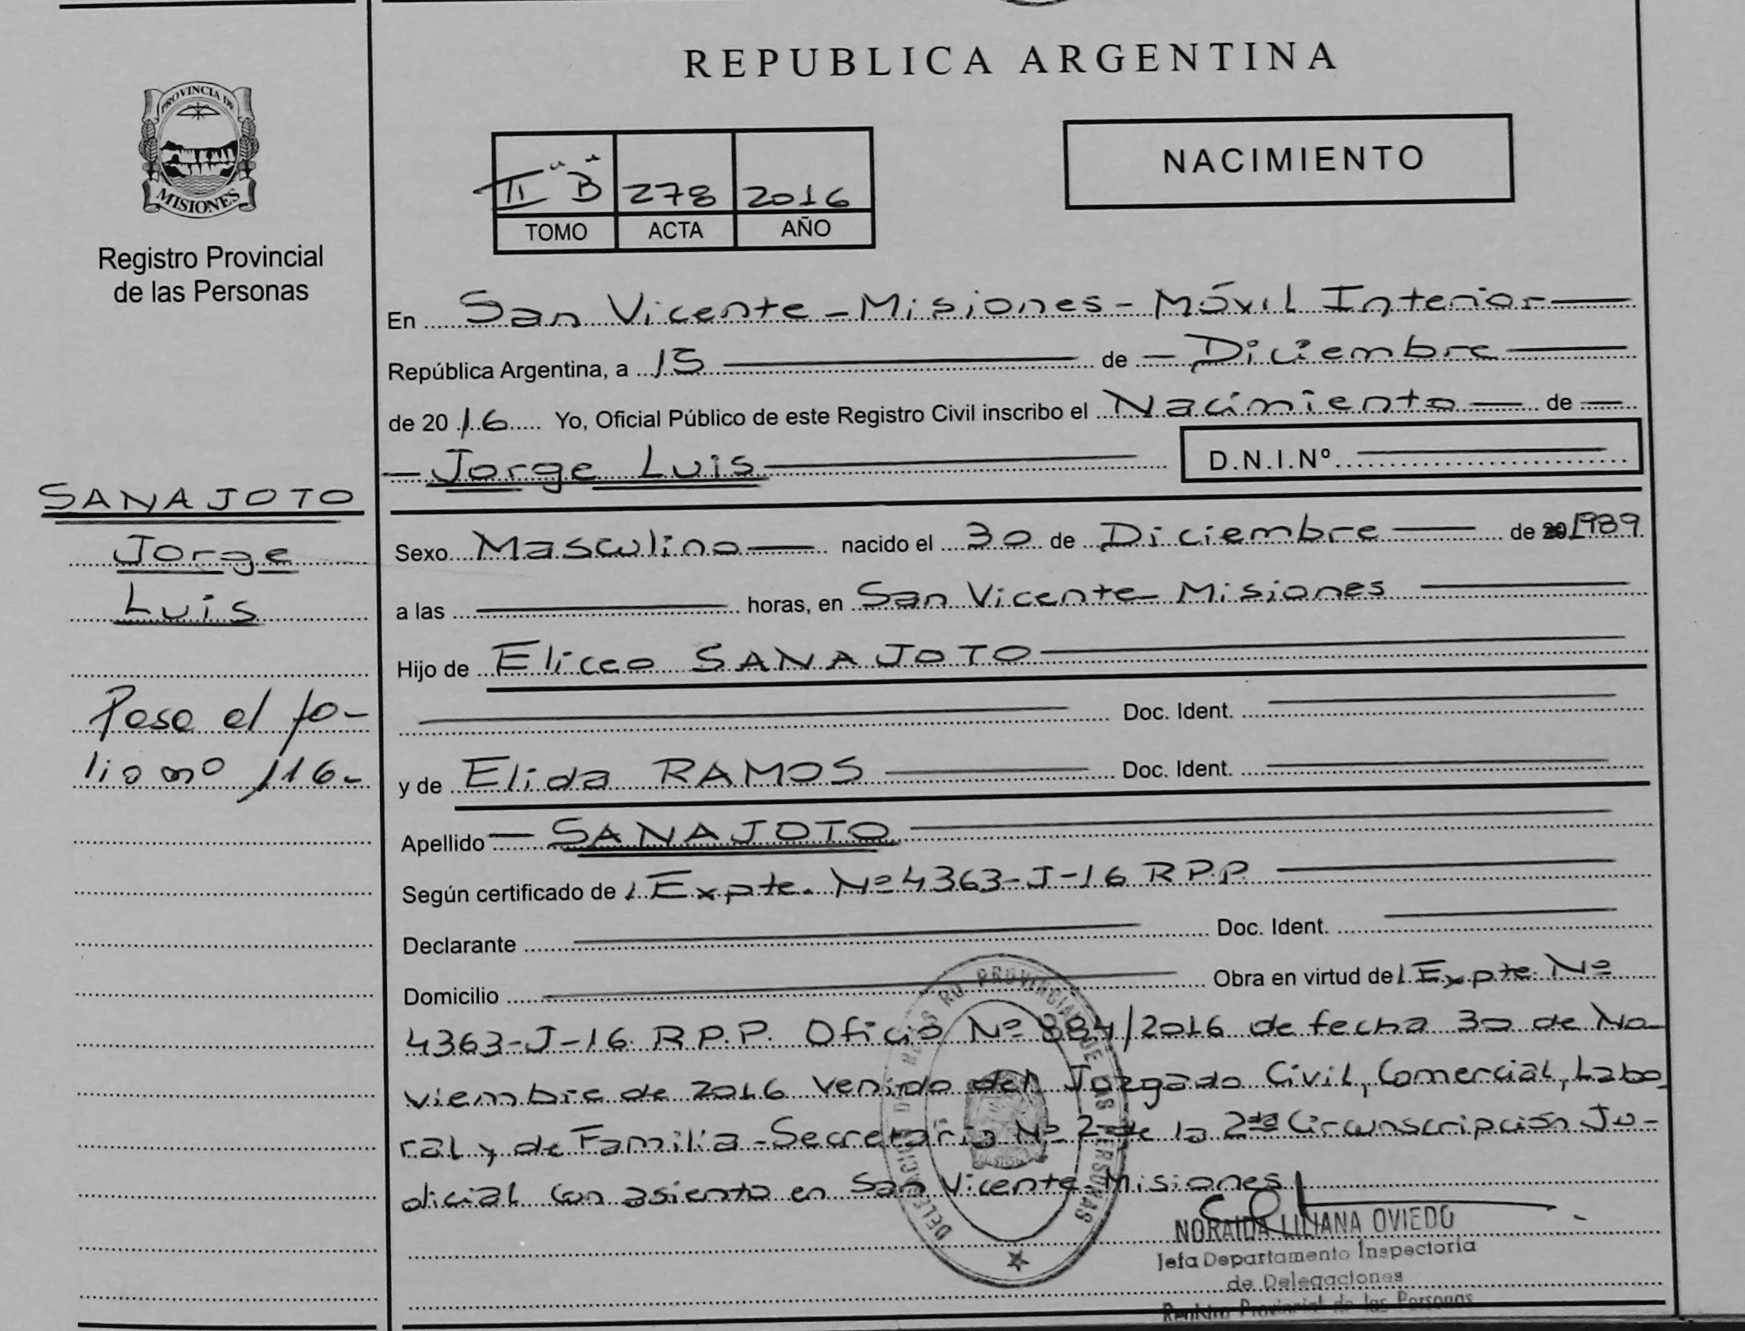 REPUBLICA ARGENTINA
PROVINCIA DE
MISIONES
Registro Provincial
de las Personas
NACIMIENTO
II "B" 278 2016
TOMO ACTA AÑO
En San Vicente - Misiones - Móvil Interior
República Argentina, a 15 de Diciembre
de 2016 Yo, Oficial Público de este Registro Civil inscribo el Nacimiento de
Jorge Luis D.N.I.Nº
SANAJOTO
Jorge
Luis
Pase el fo-
lio nº 116-
Sexo Masculino nacido el 30 de Diciembre de 1989
a las horas, en San Vicente - Misiones
Hijo de Eliceo SANAJOTO
Doc. Ident.
y de Elida RAMOS Doc. Ident.
Apellido SANAJOTO
Según certificado de l Expte. Nº 4363-J-16 R.P.P.
Declarante Doc. Ident.
Domicilio Obra en virtud del Expte. Nº
4363-J-16 R.P.P. Oficio Nº 884/2016 de fecha 30 de No-
viembre de 2016 venido del Juzgado Civil, Comercial, Labo-
ral y de Familia - Secretaría Nº 2 de la 2da Circunscripción Ju-
dicial con asiento en San Vicente - Misiones
NORAIDA LILIANA OVIEDO
Jefa Departamento Inspectoria
de Delegaciones
Registro Provincial de las Personas